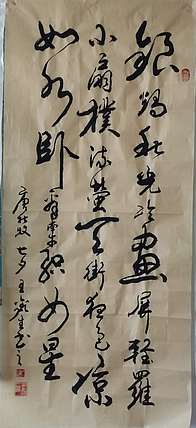 銀燭秋光冷畫屏輕羅
小扇撲流螢天街夜色涼
如水卧看牽牛織女星
唐杜牧 七夕 王